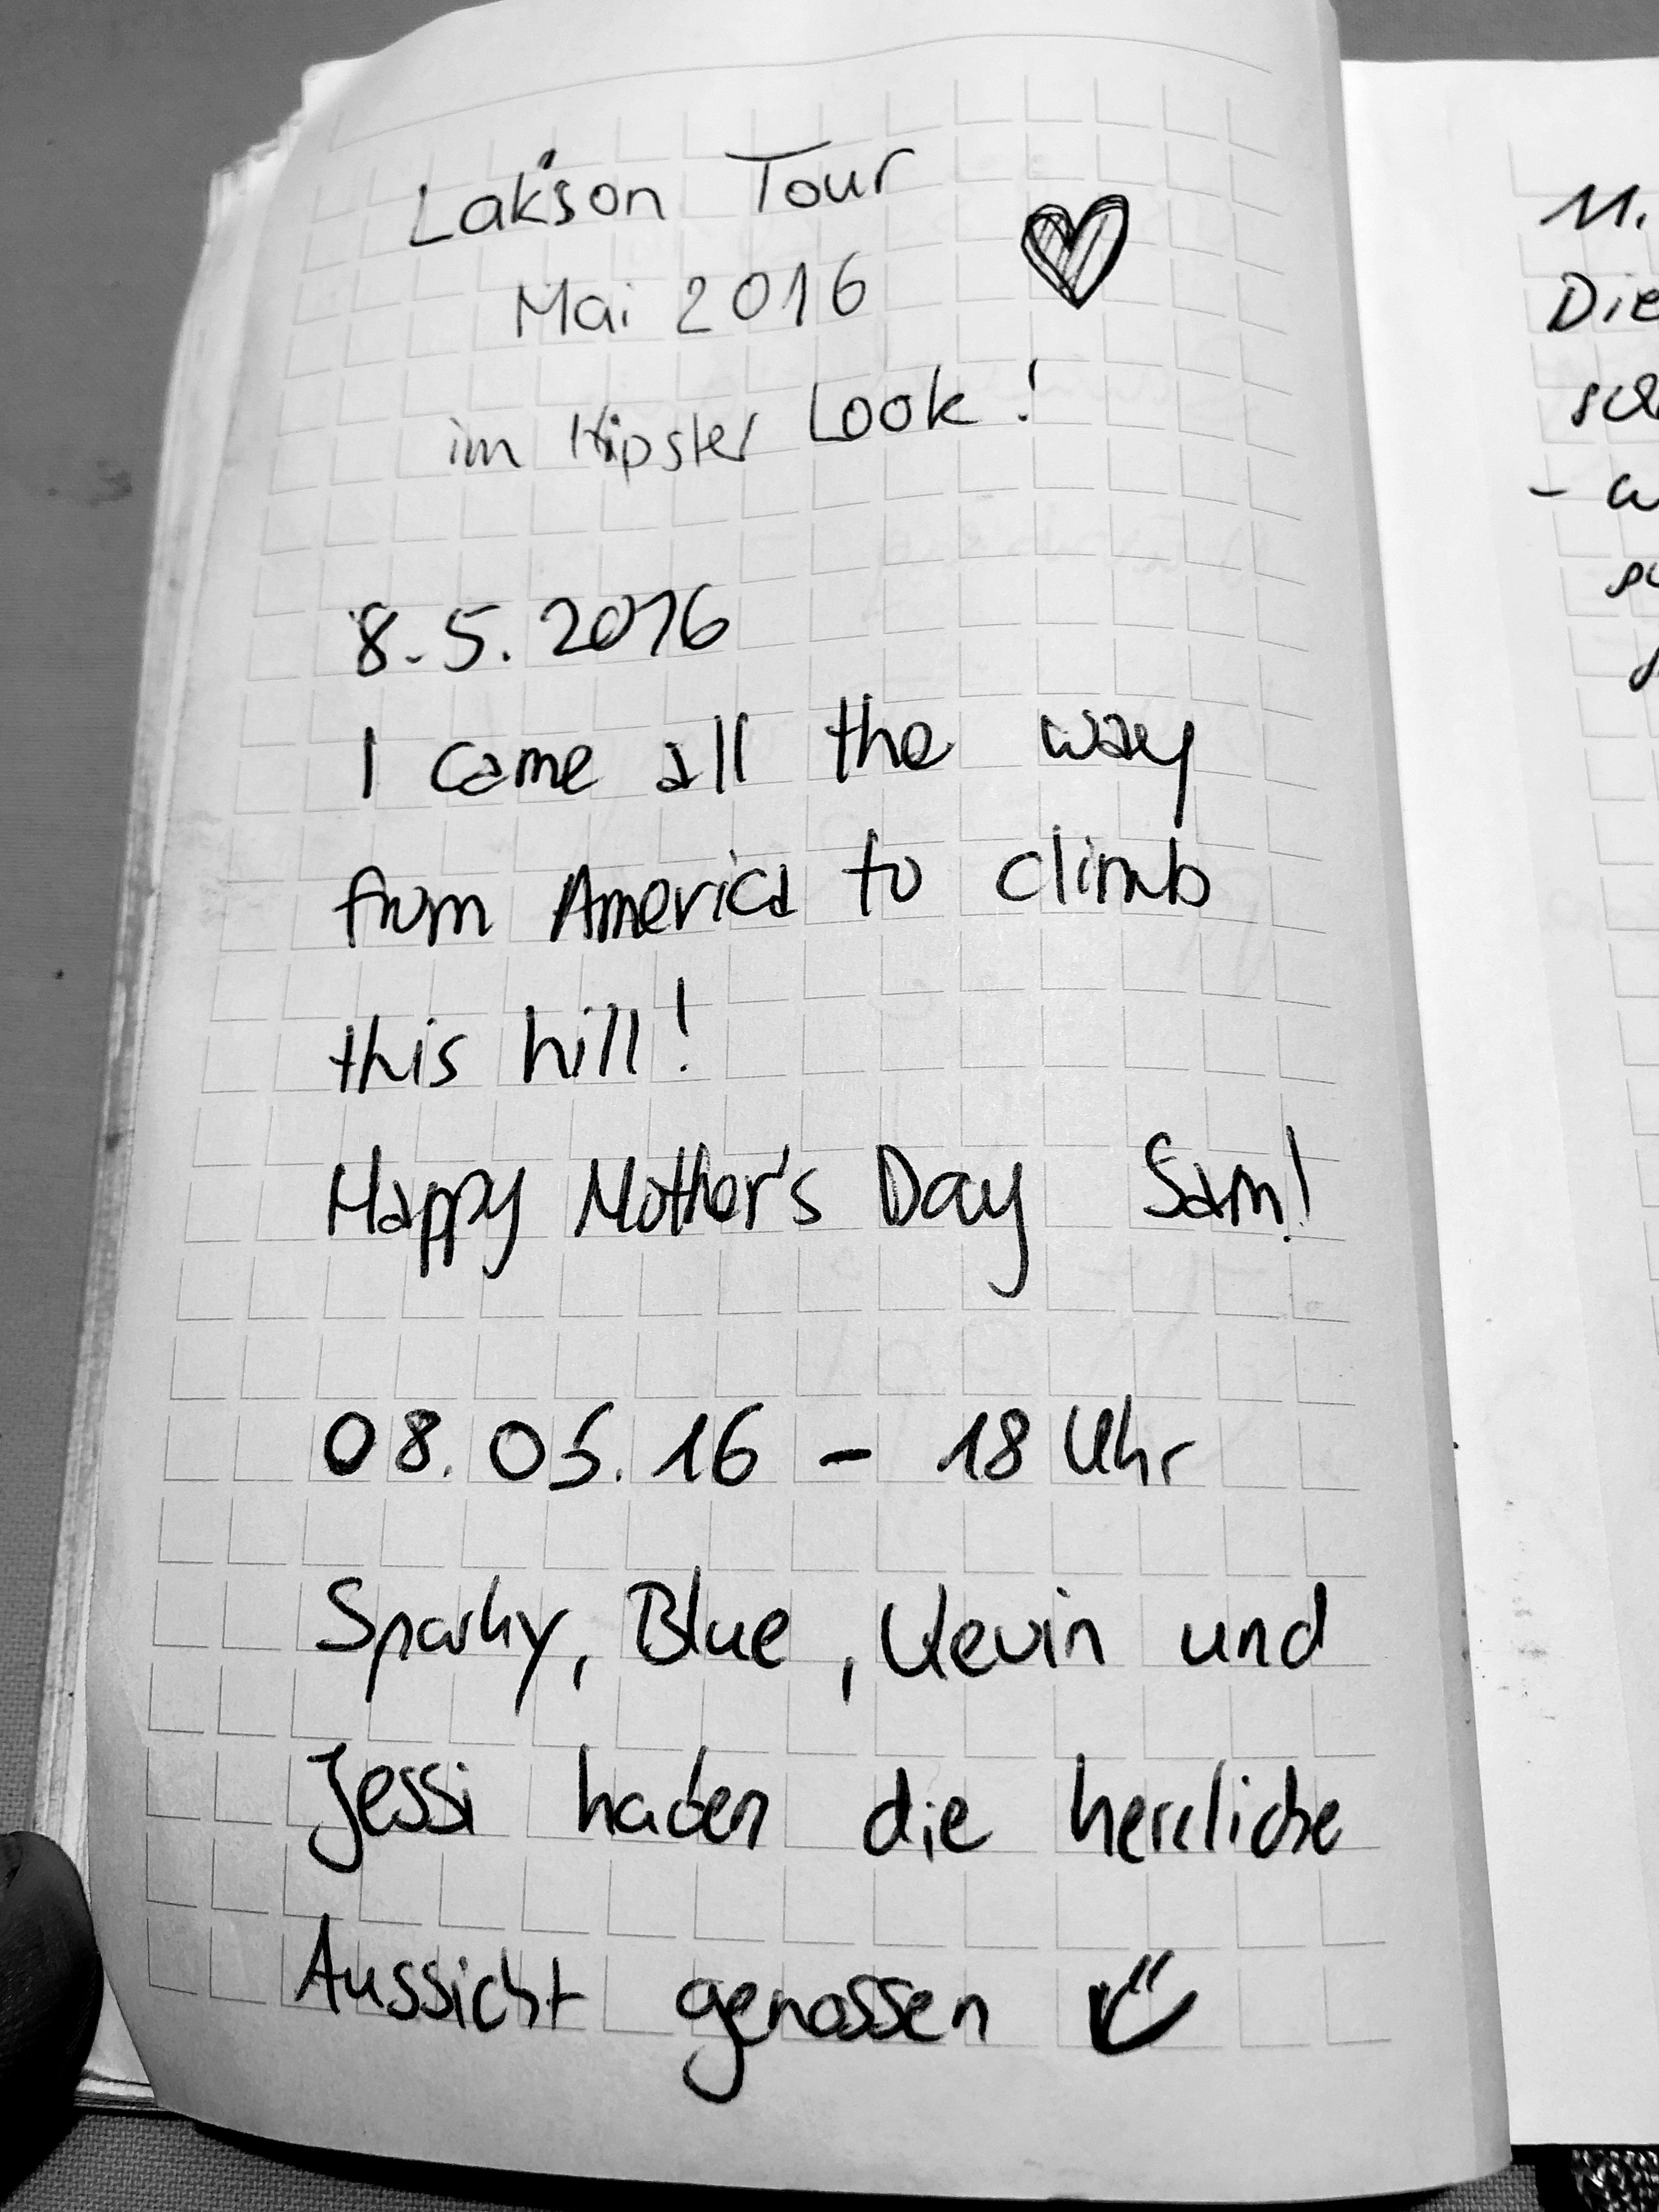 Lak'son Tour
Mai 2016
im Hipster Look!
8.5.2016
I came all the way
from America to climb
this hill!
Happy Mother's Day Sam!
08.05.16 - 18 Uhr
Sparky, Blue, Kevin und
Jessi haben die herrliche
Aussicht genossen
11.
Die